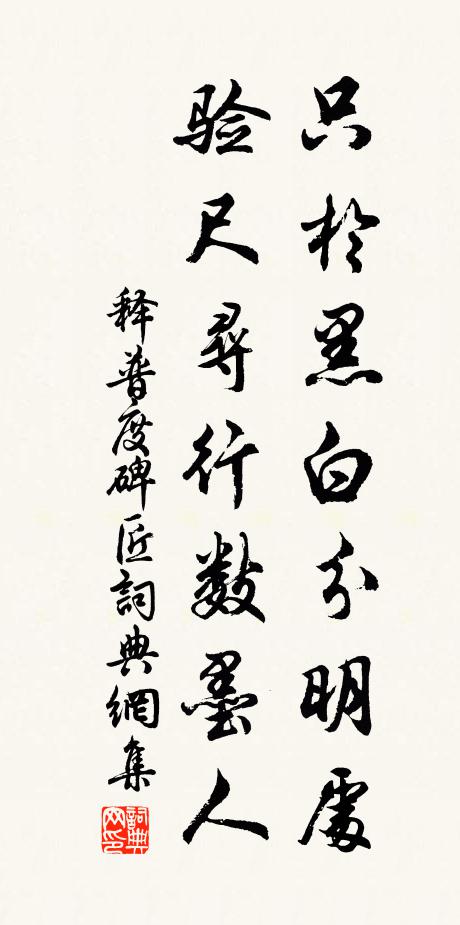 只於黑白分明處
验尺尋行数墨人
释普度碑匠詞典網集
詞典网印